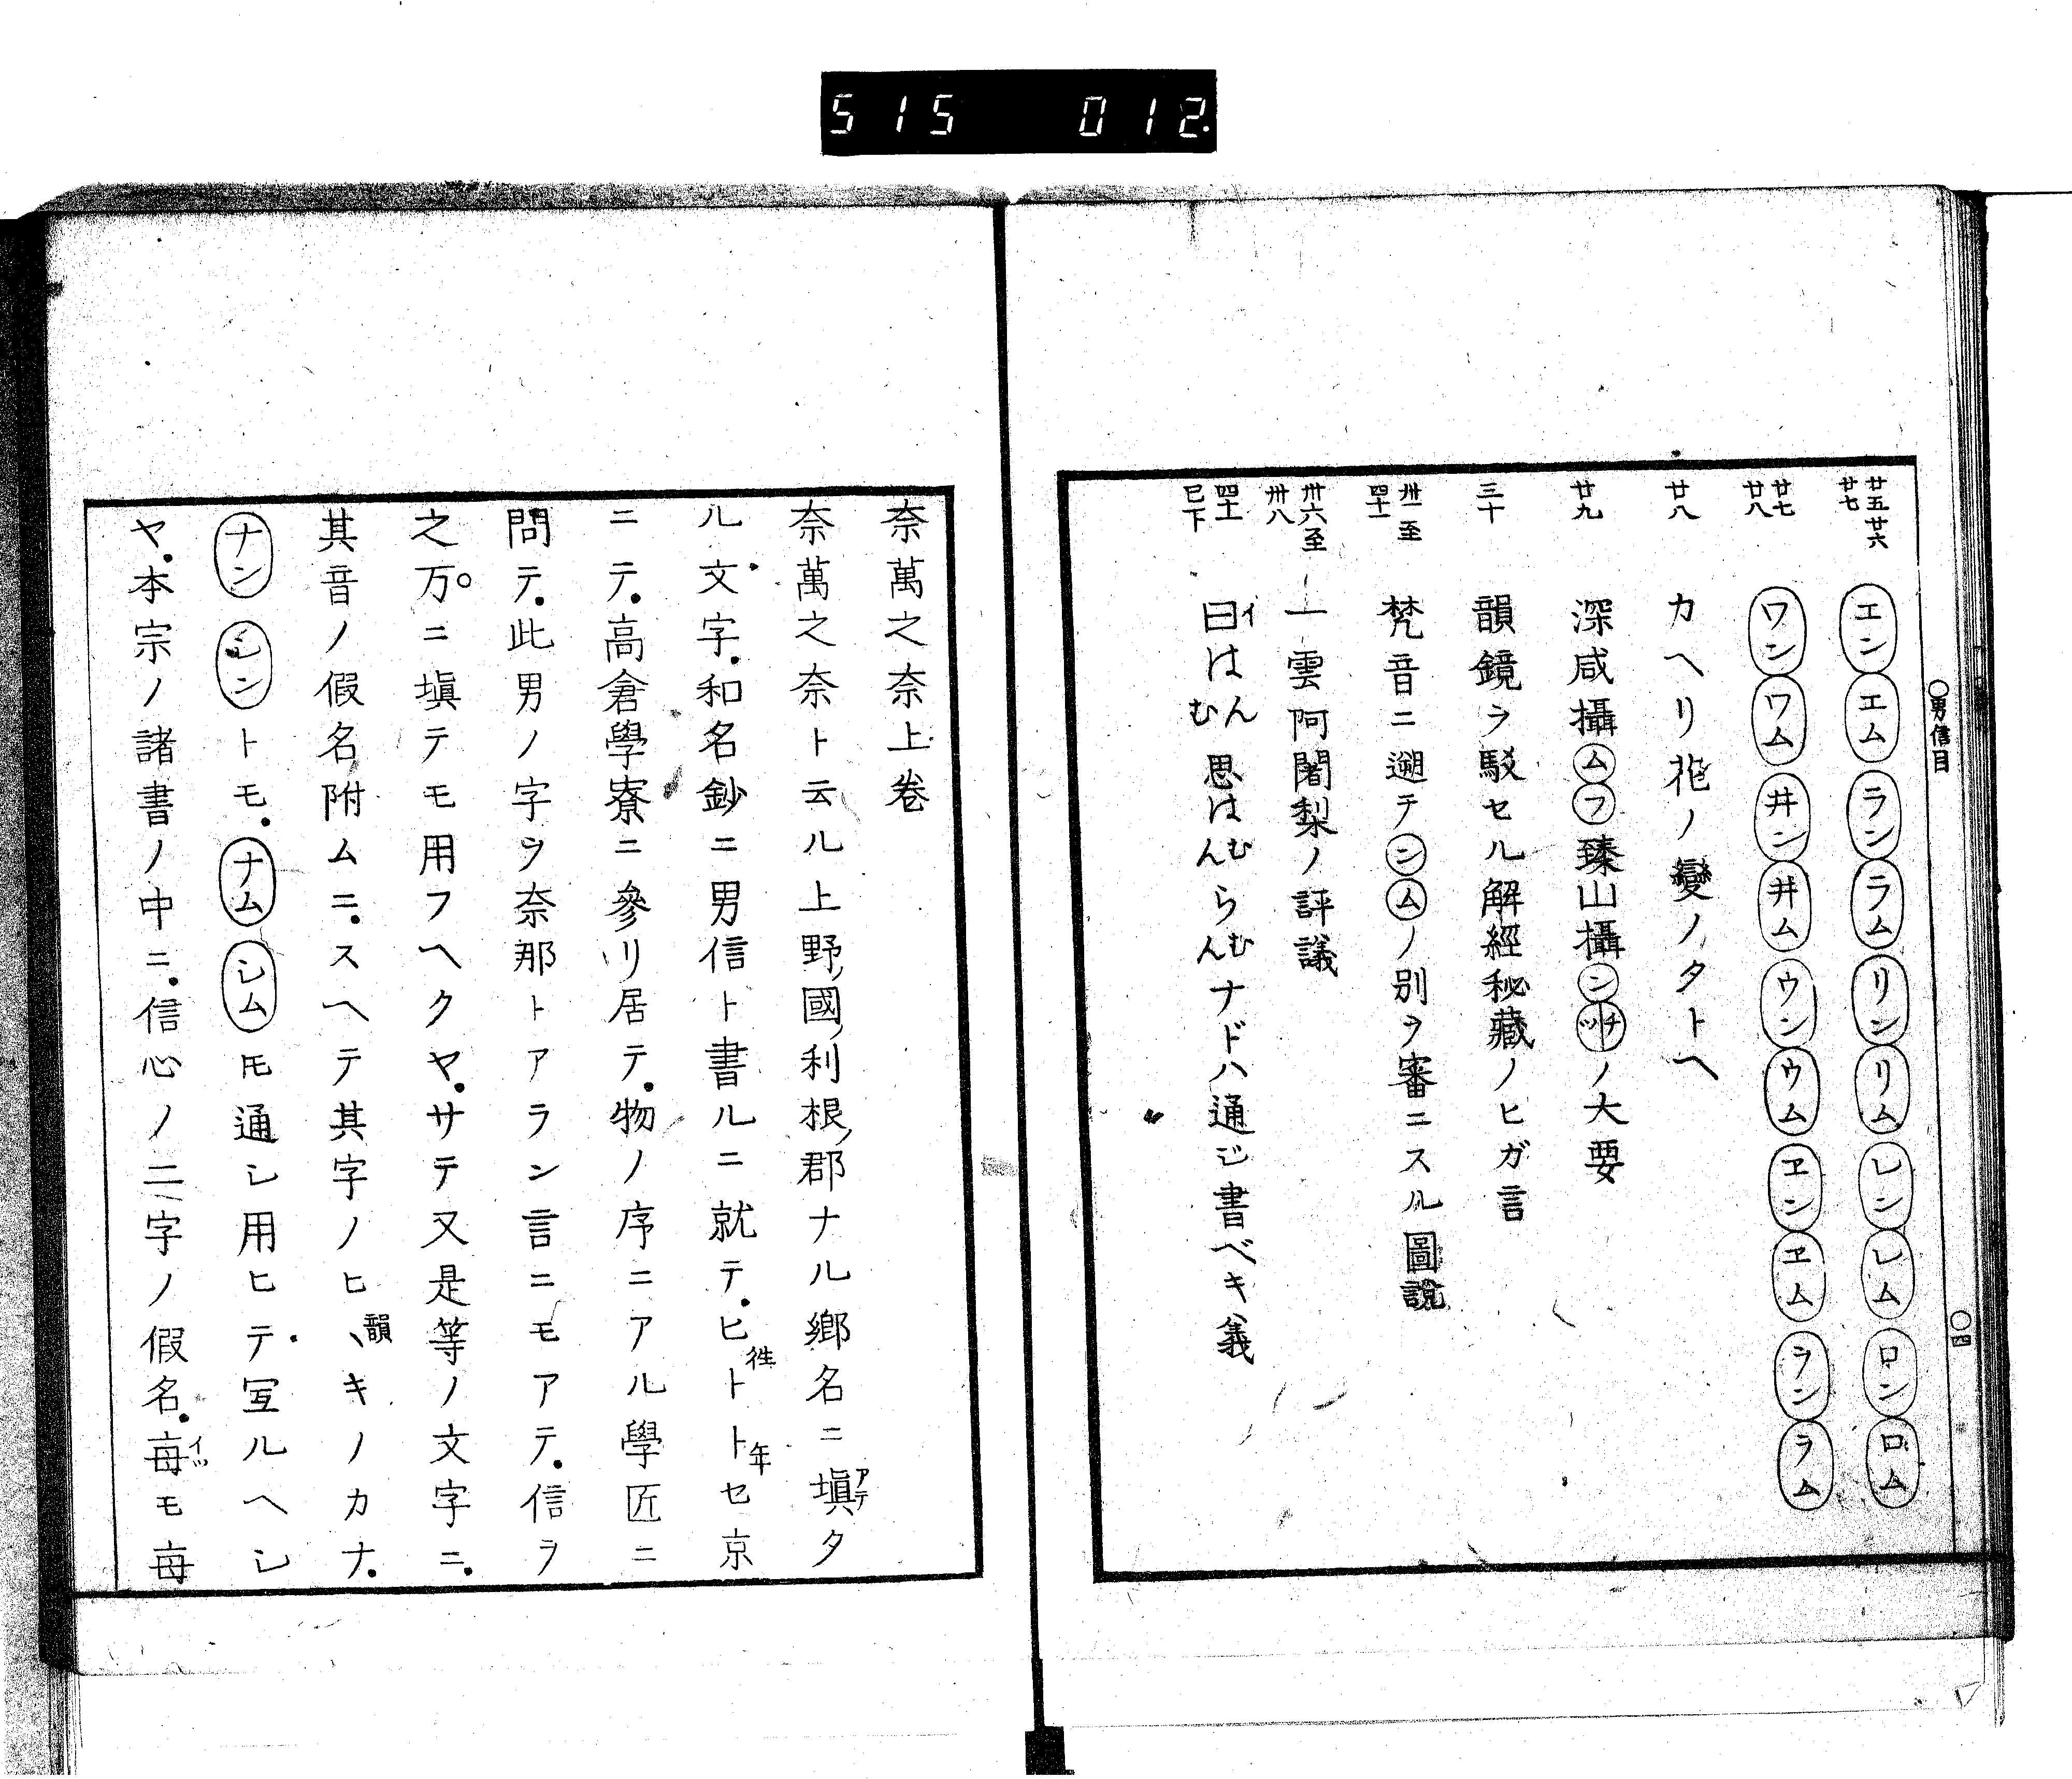 515 012.
○男信目
○四
廿五廿六廿七 エン エム ラン ラム リン リム レン レム ロン ロム
廿七廿八 ワン ワム 井ン 井ム ウン ウム ヱン ヱム ヲン ヲム
廿八 カヘリ花ノ變ノタトヘ
廿九 深咸攝ムフ臻山攝ンツチノ大要
三十 韻鏡ヲ駁セル解經秘藏ノヒガ言
卅一至四十一 梵音ニ遡テンムノ別ヲ審ニスル圖說
卅六至卅八 一雲阿闍梨ノ評議
四十一已下 曰イはんむ 思はむんらむんナドハ通ジ書ベキ義
奈萬之奈上卷
奈萬之奈ト云ル上野ノ國ノ利根ノ郡ナル鄉名ニ塡アテタ
ル文字.和名鈔ニ男信ト書ルニ就テ.ヒト往トセ年京
ニテ.高倉學寮ニ參リ居テ.物ノ序ニアル學匠ニ
問テ.此男ノ字ヲ奈那トアラン言ニモアテ.信ヲ
之万。ニ塡テモ用フヘクヤ.サテ又是等ノ文字ニ.
其音ノ假名附ムニ.スヘテ其字ノヒヽキ韻ノカナ.
ナン シントモ.ナム シムトモ通シ用ヒテ.写ルヘシ
ヤ.本宗ノ諸書ノ中ニ.信心ノ二字ノ假名.每イツモ每